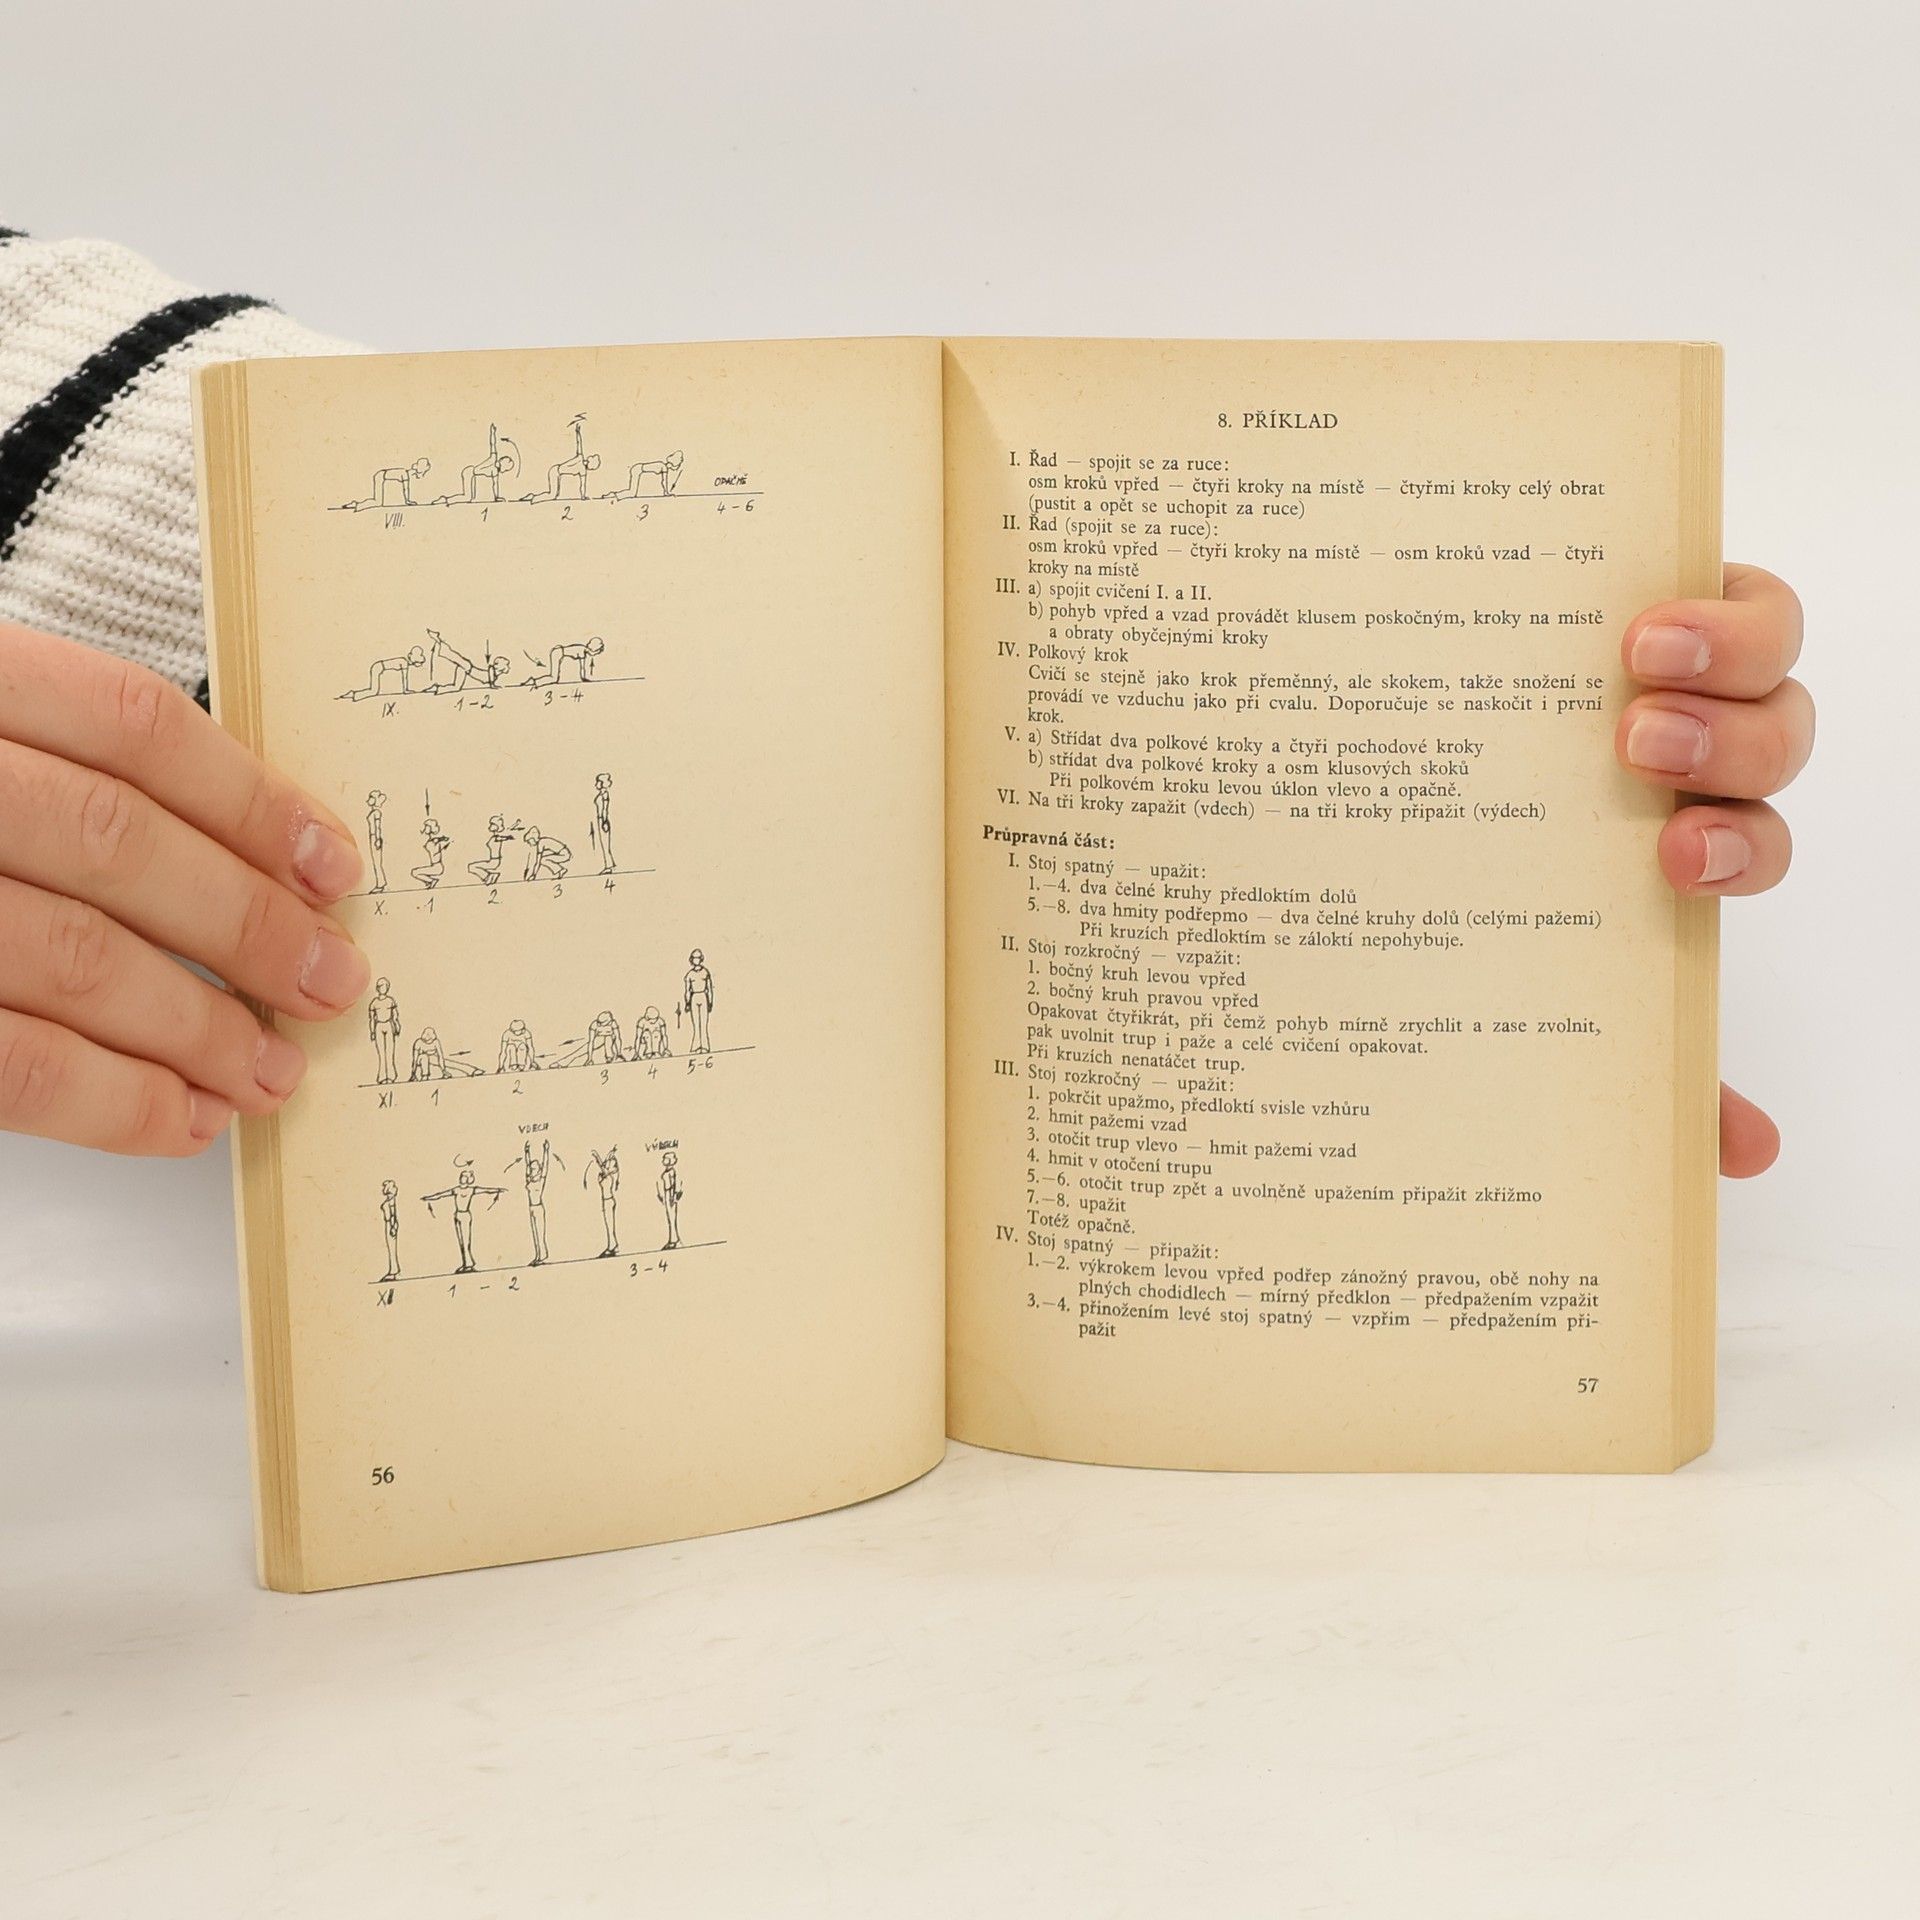 OPAČNĚ
VIII. 1 2 3 4-6
IX. 1-2 3-4
X. 1 2 3 4
XI. 1 2 3 4 5-6
VDECH
VÝDECH
1 - 2 3-4
56
8. PŘÍKLAD
I. Řad — spojit se za ruce:
osm kroků vpřed — čtyři kroky na místě — čtyřmi kroky celý obrat
(pustit a opět se uchopit za ruce)
II. Řad (spojit se za ruce):
osm kroků vpřed — čtyři kroky na místě — osm kroků vzad — čtyři
kroky na místě
III. a) spojit cvičení I. a II.
b) pohyb vpřed a vzad provádět klusem poskočným, kroky na místě
a obraty obyčejnými kroky
IV. Polkový krok
Cvičí se stejně jako krok přeměnný, ale skokem, takže snožení se
provádí ve vzduchu jako při cvalu. Doporučuje se naskočit i první
krok.
V. a) Střídat dva polkové kroky a čtyři pochodové kroky
b) střídat dva polkové kroky a osm klusových skoků
Při polkovém kroku levou úklon vlevo a opačně.
VI. Na tři kroky zapažit (vdech) — na tři kroky připažit (výdech)
Průpravná část:
I. Stoj spatný — upažit:
1.—4. dva čelné kruhy předloktím dolů
5.—8. dva hmity podřepmo — dva čelné kruhy dolů (celými pažemi)
Při kruzích předloktím se záloktí nepohybuje.
II. Stoj rozkročný — vzpažit:
1. bočný kruh levou vpřed
2. bočný kruh pravou vpřed
Opakovat čtyřikrát, při čemž pohyb mírně zrychlit a zase zvolnit,
pak uvolnit trup i paže a celé cvičení opakovat.
Při kruzích nenatáčet trup.
III. Stoj rozkročný — upažit:
1. pokrčit upažmo, předloktí svisle vzhůru
2. hmit pažemi vzad
3. otočit trup vlevo — hmit pažemi vzad
4. hmit v otočení trupu
5.—6. otočit trup zpět a uvolněně upažením připažit zkřižmo
7.—8. upažit
Totéž opačně.
IV. Stoj spatný — připažit:
1.—2. výkrokem levou vpřed podřep zánožný pravou, obě nohy na
plných chodidlech — mírný předklon — předpažením vzpažit
3.—4. přinožením levé stoj spatný — vzpřim — předpažením při-
pažit
57